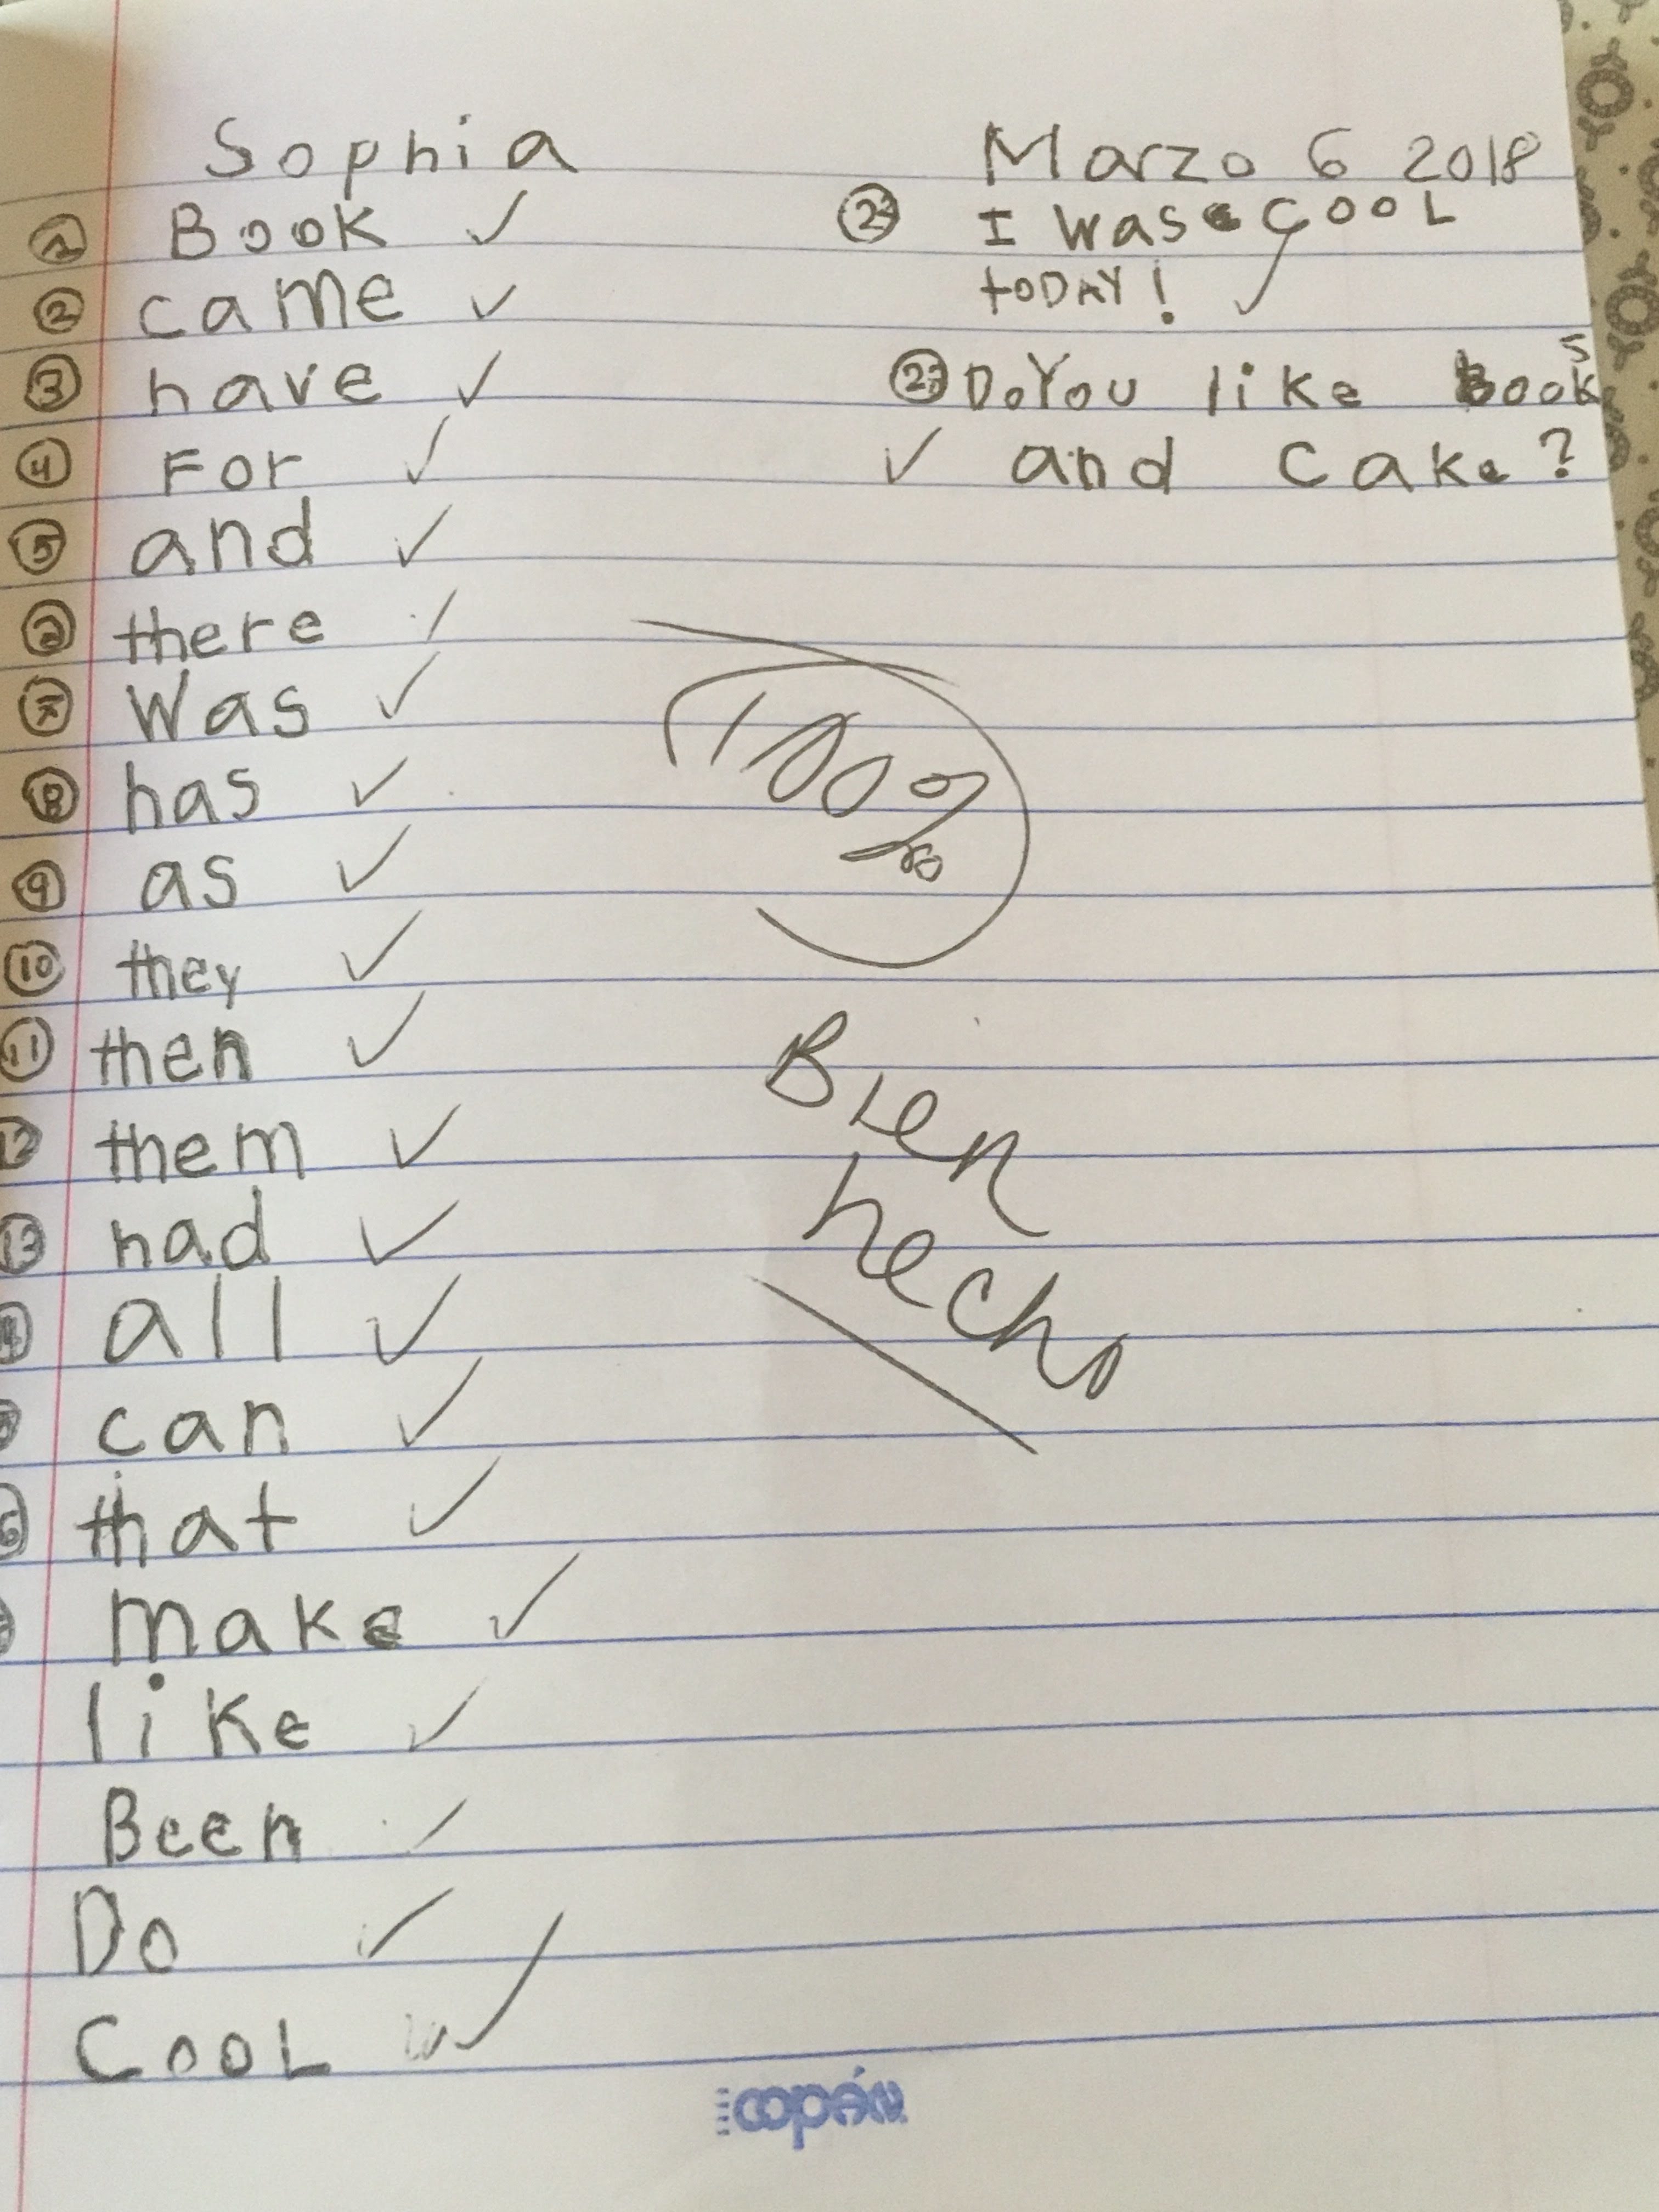 Sophia
Marzo 6 2018
① Book ✓
② came ✓
③ have ✓
④ For ✓
⑤ and ✓
there ✓
⑦ Was ✓
⑧ has ✓
⑨ as ✓
⑩ they ✓
⑪ then ✓
⑫ them ✓
⑬ had ✓
⑭ all ✓
can ✓
that ✓
make ✓
like ✓
Been ✓
Do ✓
COOL ✓
I was COOL
toDAY! ✓
DoYou like Books
✓ and Cake?
100%
Bien
hecho
copán